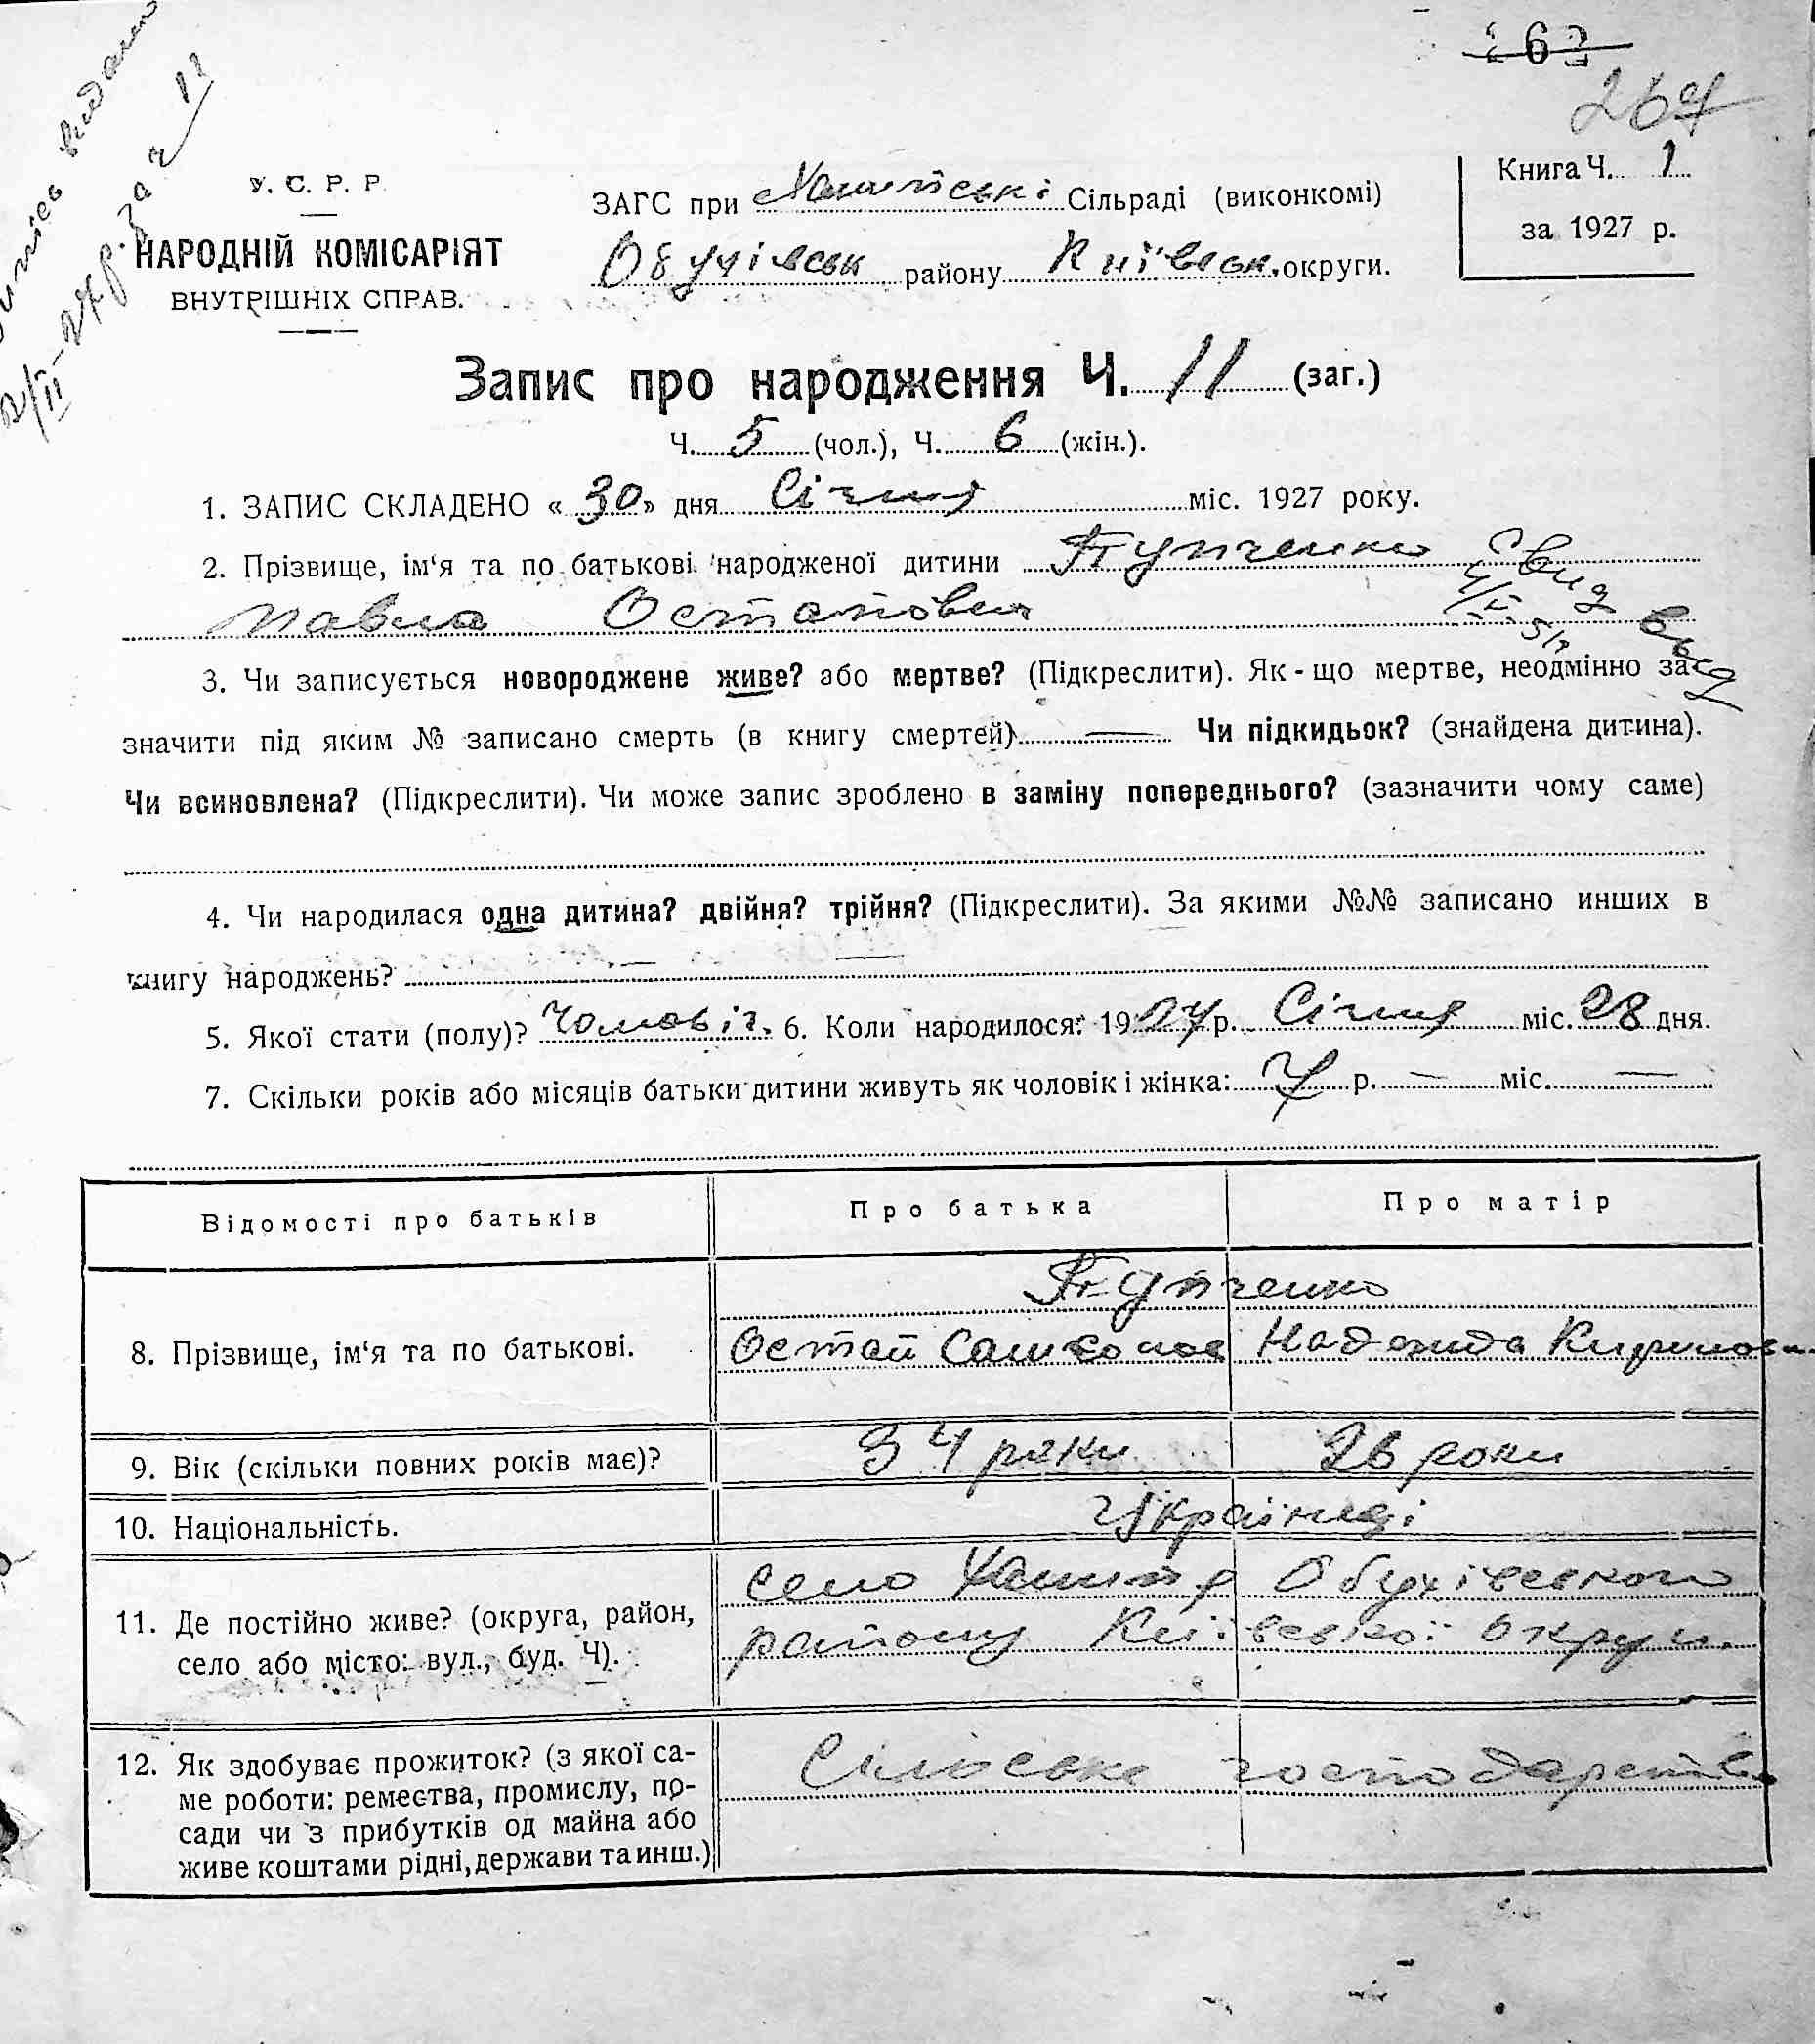 262
264
У. С. Р. Р.
НАРОДНІЙ КОМІСАРІЯТ
ВНУТРІШНІХ СПРАВ.
ЗАГС при Сільраді (виконкомі)
Обухівськ району Київськ. округи.
Книга Ч. 1
за 1927 р.
Запис про народження Ч. 11 (заг.)
Ч. 5 (чол.), Ч. 6 (жін.).
1. ЗАПИС СКЛАДЕНО « 30 » дня Січня міс. 1927 року.
2. Прізвище, ім‘я та по батькові народженої дитини Тупченко
Павла Остапович
3. Чи записується новороджене живе? або мертве? (Підкреслити). Як-що мертве, неодмінно за-
значити під яким № записано смерть (в книгу смертей) — Чи підкидьок? (знайдена дитина).
Чи всиновлена? (Підкреслити). Чи може запис зроблено в заміну попереднього? (зазначити чому саме)
4. Чи народилася одна дитина? двійня? трійня? (Підкреслити). За якими №№ записано инших в
книгу народжень? — —
5. Якої стати (полу)? Чоловіч. 6. Коли народилося: 1927 р. Січня міс. 28 дня.
7. Скільки років або місяців батьки дитини живуть як чоловік і жінка: 7 р. — міс. —
Відомості про батьків Про батька Про матір
Тупченко
8. Прізвище, ім‘я та по батькові. Остап Самсонов Надежида Кирилов
9. Вік (скільки повних років має)? 34 роки 26 роки
10. Національність. Українці
село Обухівського
11. Де постійно живе? (округа, район, району Київської округи.
село або місто: вул., буд. Ч).
12. Як здобуває прожиток? (з якої са- Сільське господарств.
ме роботи: ремества, промислу, по-
сади чи з прибутків од майна або
живе коштами рідні, держави та инш.)